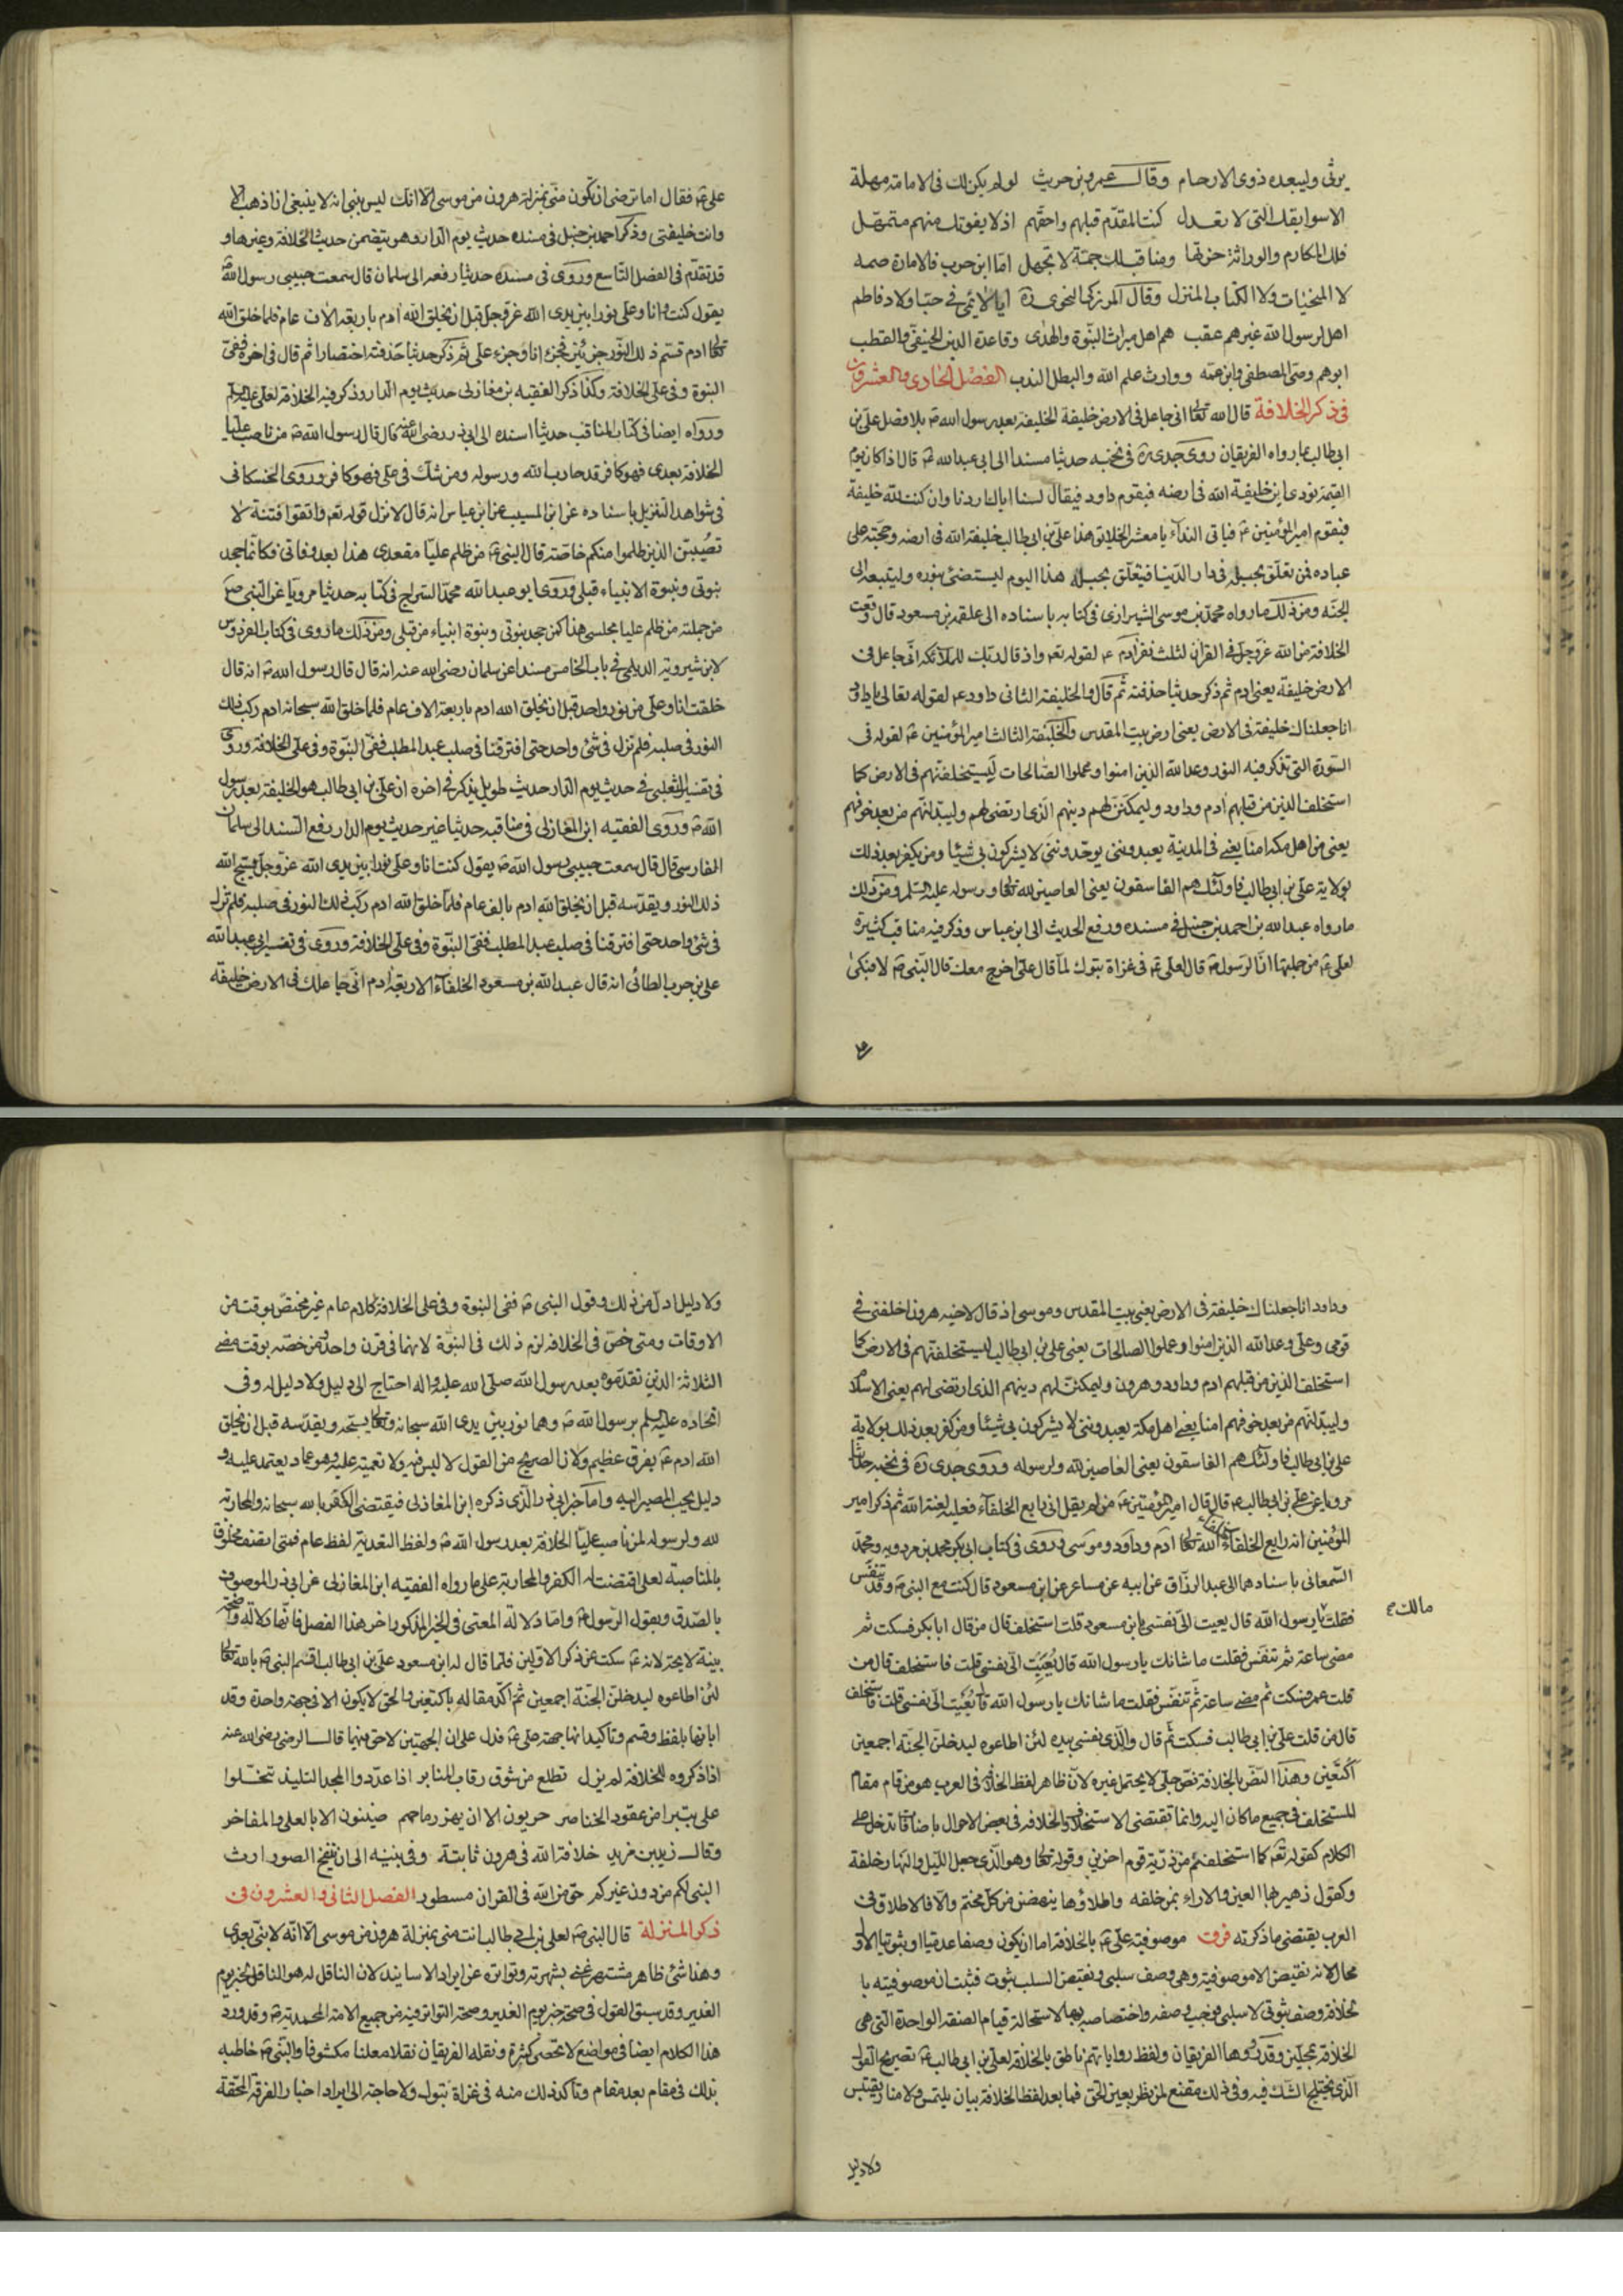 يرثى وليبعده ذوى الارحام وقال عمرو بن حريث لو لم يكن لك فى الامامة مهلة
الا سوابقك التى لا تعدل كنت المقدّم قبلهم واحقّهم اذ لا يفوتك منهم متمهّل
فلك المكارم والوراثة حزتها ومناقب لك جمّة لا تجهل امّا ابن حرب فالامارة
لا المخنيات ولا الكتاب المنزل وقال المرزكى النحوى ره ايا لائمى فى حبّ اولاد فاطم
اهل لرسول الله غيرهم عقب هم اهل ميراث النبّوة والهدى وقاعدة الدين الحنيفىّ والقطب
ابوهم وصىّ المصطفى وابن عمّه ووارث علم الله والبطل الندب الفصل الحادى والعشرون
فى ذكر الخلافة قال الله تعالى انى جاعل فى الارض خليفة الخليفة بعد رسول الله ص بلا فصل على بن
ابى طالب بما رواه الفريقان روى جدى ره فى نخبه حديثا مسندا الى ابى عبد الله ع قال اذا كان يوم
القيمة نودى اين خليفة الله فى ارضه فيقوم داود فيقال لسنا اياك اردنا وان كنت لله خليفة
فيقوم امير المؤمنين ع فياتى النداء يا معشر الخلائق هذا على بن ابى طالب خليفة الله فى ارضه وحجّته على
عباده فمن تعلّق بحبله فى دار الدّنيا فيتعلّق بحبله هذا اليوم ليستضئ بنوره وليتبعه الى
الجنّه ومن ذلك ما رواه محمد بن موسى الشيرازى فى كتابه باسناده الى علقمة بن مسعود قال وقعت
الخلافة من الله عزّ وجلّ فى القران لثلث نفر ادم ع لقوله تع واذ قال ربّك للملائكة انّى جاعل فى
الارض خليفة يعنى ادم ثم ذكر حديثا حذفته ثم قال والخليفة الثانى داود ع لقوله تعالى يا داود
انا جعلناك خليفة فى الارض يعنى ارض بيت المقدس والخليفة الثالث امير المؤمنين ع لقوله فى
السّورة التى تذكر فيه النور وعد الله الذين امنوا وعملوا الصّالحات ليستخلفنّهم فى الارض كما
استخلف الذين من قبلهم ادم وداود وليمكّننّ لهم دينهم الّذى ارتضى لهم وليبدلنّهم من بعد خوفهم
يعنى من اهل مكه امنا يعنى فى المدينة يعبدوننى يوحّدوننى لا يشركون بى شيئا ومن يكفر بعد ذلك
بولاية على بن ابى طالب فاولئك هم الفاسقون يعنى العاصين لله تعالى ولرسوله عليه السّلم ومن ذلك
ما رواه عبد الله بن احمد بن حنبل فى مسنده ورفع الحديث الى ابن عباس وذكر فيه مناقب كثيرة
لعلى ع من جملتها انّ الرّسول ص قال لعلى ع فى غزاة تبوك لمّا قال على اخرج معك قال النّبى ص لا فبكى
على ع فقال اما ترضى ان تكون منّى بمنزلة هرون من موسى الا انّك ليس بنبى انه لا ينبغى ان اذهب الا
وانت خليفتى وذكر احمد بن حنبل فى مسنده حديث يوم الدار وهو يتضمن حديث الخلافة وغيرها و
قد تقدّم فى الفصل التّاسع وروى فى مسنده حديثا رفعه الى سلمان قال سمعت حبيبى رسول الله ص
يقول كنت انا وعلى نورا بين يدى الله عزّ وجلّ قبل ان يخلق الله ادم باربعة الاف عام فلما خلق الله
تعالى ادم قسّم ذلك النّور جزئين فجزء انا وجزء على ثم ذكر حديثا حذفته اختصارا ثم قال فى اخره ففىّ
النبوة وفى على الخلافة وكذا ذكر الفقيه بن مغازلى حديث يوم الدار وذكر فيه الخلافة لعلى عليه السلام
ورواه ايضا فى كتاب المناقب حديثا اسنده الى ابى ذر رضى الله عنه قال قال رسول الله ص من ناصب عليّا
الخلافة بعدى فهو كافر قد حارب الله ورسوله ومن شكّ فى على فهو كافر وروى الحسكانى
فى شواهد التنزيل باسناده عن ابن المسيب عن ابن عباس انه قال لا نزل قوله تع واتقوا فتنة لا
تصيبنّ الذين ظلموا منكم خاصّة قال النبى ع من ظلم عليّا مقعدى هذا بعد وفاتى فكانّما جحد
بنوتى ونبوة الانبياء قبلى وروى ابو عبد الله محمّد السّراج فى كتابه حديثا مرويا عن النّبى ص
من جملته من ظلم عليا مجلسى هذا كمن جحد بنوتى وبنوة انبياء من قبلى ومن ذلك ما روى فى كتاب الفردوس
لابن شيرويه الديلمى فى باب الخامس مسندا عن سلمان رضى الله عنه انه قال قال رسول الله ص انه قال
خلقت انا وعلى من نور واحد قبل ان يخلق الله ادم باربعة الاف عام فلما خلق الله سبحانه ادم ركب ذلك
النور فى صلبه فلم نزل فى شئ واحد حتى افترقنا فى صلب عبد المطلب ففىّ النبّوة وفى على الخلافة وروى
فى تفسير الثعلبى فى حديث يوم الدار حديث طويل يذكر فى اخره ان على بن ابى طالب هو الخليفة بعد رسول
الله ص وروى الفقيه ابن المغازلى فى مناقبه حديثا غير حديث يوم الدار رفع السّند الى سلمان
الفارسى قال قال سمعت حبيبى رسول الله ص يقول كنت انا وعلى نورا بين يدى الله عزّ وجلّ يسبّح الله
ذلك النور ويقدّسه قبل ان يخلق الله ادم بالف عام فلمّا خلق الله ادم ركّب ذلك النور فى صلبه فلم نزل
فى شئ واحد حتى افترقنا فى صلب عبد المطلب ففىّ النبّوة وفى على الخلافة وروى فى تفسير ابى عبد الله
على بن حرب الطائى انه قال عبد الله بن مسعود الخلفاء الاربعة ادم انّى جاعلك فى الارض خليفة
وداود انا جعلناك خليفة فى الارض يعنى بيت المقدس وموسى اذ قال لاخيه هرون اخلفنى فى
قومى وعلى وعد الله الذين امنوا وعملوا الصالحات يعنى على بن ابى طالب ليستخلفنّهم فى الارض كما
استخلف الذين من قبلهم ادم وداود وهرون وليمكننّ لهم دينهم الذى ارتضى لهم يعنى الاسلام
وليبدّلنّهم من بعد خوفهم امنا يعنى اهل مكة يعبدوننى لا يشركون بى شيئا ومن كفر بعد ذلك بولاية
على بن ابى طالب فاولئك هم الفاسقون يعنى العاصين لله ولرسوله وروى جدى ره فى نخبه حديثا
مرويا عن على بن ابى طالب ع قال قال امير المؤمنين ع من لم يقل انى رابع الخلفاء فعليه لعنة الله ثم ذكر امير
المؤمنين انه رابع الخلفاء الله تعالى ادم وداود وموسى وروى فى كتاب ابى بكر محمد بن مردويه ومحمّد
السّمعانى باسنادهما الى عبد الرزّاق عن ابيه عن ابن مسعود قال كنت مع النبى ص وقد تنفّس
فقلت يا رسول الله قال نعيت الىّ نفسى يا بن مسعود قلت استخلف قال من قال ابا بكر فسكت ثم
مالك ع
مضى ساعة ثم تنفّس فقلت ما شانك يا رسول الله قال نُعِيَت الىّ نفسى قلت فاستخلف قال من
قلت عمر فسكت ثم مضى ساعة ثمّ تنفّس فقلت ما شانك يا رسول الله قال نُعِيَت الىّ نفسى قلت فاستخلف
قال من قلت على بن ابى طالب فسكت ثم قال والّذى نفسى بيده لئن اطاعوه ليدخلنّ الجنّة اجمعين
اكتعين وهذا النّصّ بالخلافة نصّ جلى لا يحتمل غيره لانّ ظاهر لفظ الخلافة فى العرب هو من قام مقام
المستخلف فى جميع ما كان اليه وانما تقتضى الاستخلاف والخلافة فى بعض الاحوال باضافات تدخل على
الكلام كقوله تع كما استخلفتم من ذريّة قوم اخرين وقوله تعالى وهو الّذى جعل الليل والنّهار خلفة
وكقول زهير بها العين والاراء يمشين خلفه واطلاؤها ينهضن من كلّ مجثم والّا فالاطلاق فى
العرب يقتضى ما ذكرته فرق موصوفية على ع بالخلافة اما ان يكون وصفا عدميا او ثبوتيا الاوّل
محال لانه نقيض اللاموصوفية وهى وصف سلبى ونقيض السلب ثبوت فثبت ان موصوفيته با
لخلافة وصف ثبوتى لا سلبى فوجب وصفه واختصاصه بها لاستحالة قيام الصفة الواحدة التى هى
الخلافة بمحلّين وقد رووها الفريقان ولفظ رواياتهم ناطق بالخلافة لعلى بن ابى طالب ع تصريح القول
الّذى يختلج الشّك فيه وفى ذلك مقنع لمن نظر بعين الحقّ فما بعد لفظ الخلافة بيان يلتمس ولا منار يقتبس
ولا دليل
ولا دليل ادلّ من ذلك وقول النبى ص ففى النبوة وفى على الخلافة كلام عام غير مختصّ بوقت من
الاوقات ومتى خصّ فى الخلافة لزم ذلك فى النبوة لانهما فى قرن واحد ومن خصّه بوقت مضى
الثلاثة الذين تقدّموه بعد رسول الله صلّى الله عليه واله احتاج الى دليل ولا دليل له وفى
اتحاده عليه السلم برسول الله ص وهما نور بين يدى الله سبحانه وتعالى يسبّحه ويقدّسه قبل ان يخلق
الله ادم ع بفرق عظيم ولانّ الصريح من القول لا لبس فيه ولا تعمية عليه وهو عماد يعتمد عليه و
دليل يجب المصير اليه وامّا خبر ابى ذر الّذى ذكره ابن المغازلى فيقتضى الكفر بالله سبحانه والمحاربة
لله ولرسوله لمن ناصب عليّا الخلافة بعد رسول الله ص ولفظ البعدية لفظ عام فمتى اتصف مخلوق
بالمناصبة لعلى اقتضت له الكفر والمحاربة على ما رواه الفقيه ابن المغازلى عن ابى ذر الموصوف
بالصّدق وبقول الرّسول ص وامّا دلالة المعنى فى الخبر المذكور اخر هذا الفصل فانّها دلالة واضحة
بينة لانه ع سكت عن ذكر الاوّلين فلما قال له ابن مسعود على بن ابى طالب اقسم النبى ص بالله تعالى
لئن اطاعوه ليدخلنّ الجنّة اجمعين ثم اكّد مقاله باكتعين والحقّ لا يكون الا فى جهة واحدة وقد
ابانها بلفظ وقسم وتاكيد انها جهة على ع فدل على ان الجهتين لا حق فيهما قال الرضى رضى الله عنه
اذا ذكروه للخلافة لم يزل تطلع من شوق رقاب المنابر اذا عدّدوا المجد التليد تنحّلوا
على تبرا من عقود الخناصر حريون الا ان يهز رماحهم ضنينون الا بالعلى والمفاخر
وقال زيد بن مزيد خلافة الله فى هرون ثابتة وفى بنيه الى ان ينفخ الصور ارث
النبى لكم من دون غيركم حق من الله فى القران مسطور الفصل الثانى والعشرون فى
ذكر المنزلة قال النبى ص لعلى بن ابى طالب انت منى بمنزلة هرون من موسى الّا انّه لا نبىّ بعدى
وهذا شئ ظاهر مشتهر غنى بشهرته وتواتره عن ايراد الاسانيد لان الناقل له هو الناقل لخبر يوم
الغدير وقد سبق القول فى صحة خبر يوم الغدير وصحة التواتر فيه من جميع الامة المحمدية ص وقد ورد
هذا الكلام ايضا فى مواضع لا تحصى كثرة ونقله الفريقان نقلا معلنا مكشوفا والنّبى ص خاطبه
بذلك فى مقام بعد مقام وتاكد ذلك منه فى غزاة تبوك ولا حاجة الى ايراد اخبار الفرقة المحقّة